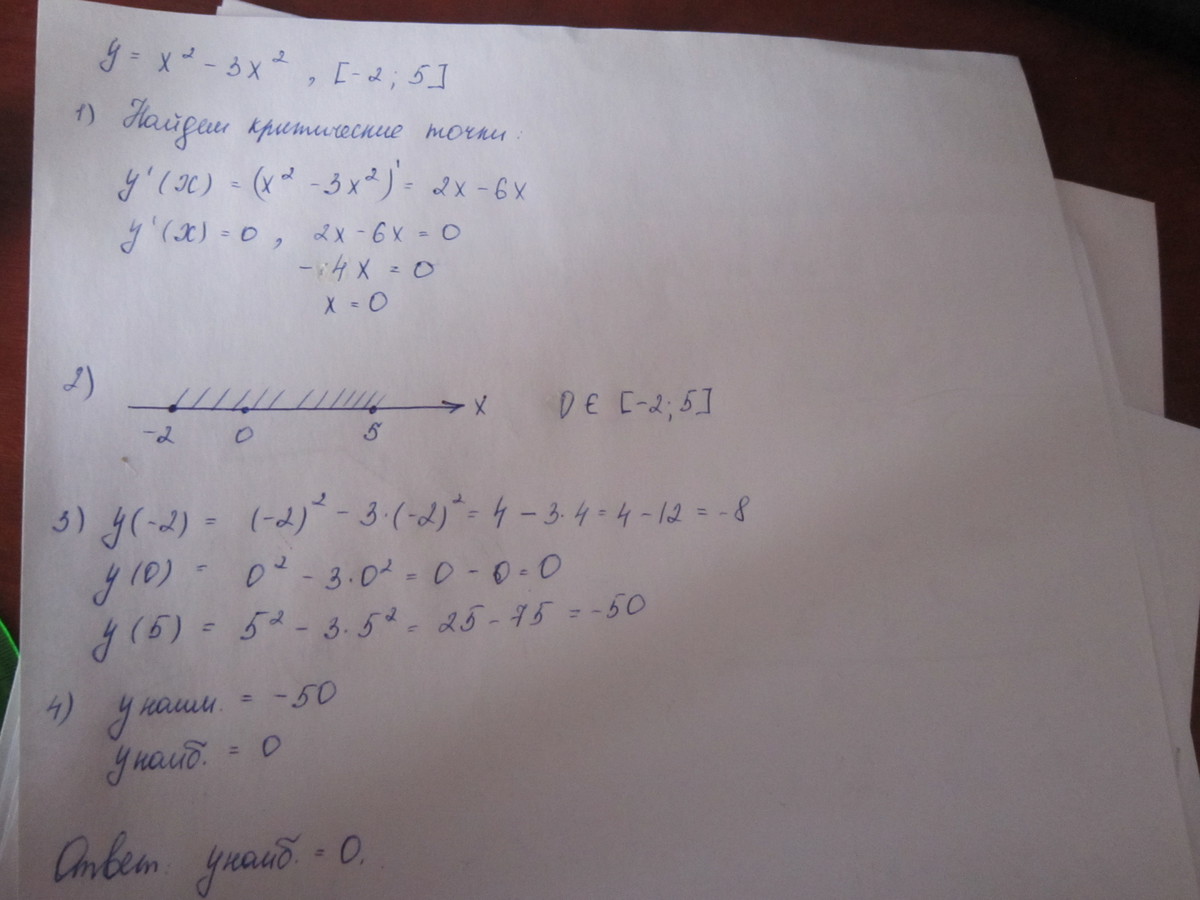 y = x² - 3x², [-2; 5]
1) Найдем критические точки:
y'(x) = (x² - 3x²)' = 2x - 6x
y'(x) = 0, 2x - 6x = 0
- 4x = 0
x = 0
2) x 0 ∈ [-2; 5]
-2 0 5
3) y(-2) = (-2)² - 3·(-2)² = 4 - 3·4 = 4 - 12 = -8
y(0) = 0² - 3·0² = 0 - 0 = 0
y(5) = 5² - 3·5² = 25 - 75 = -50
4) y наим. = -50
y наиб. = 0
Ответ: y наиб. = 0.